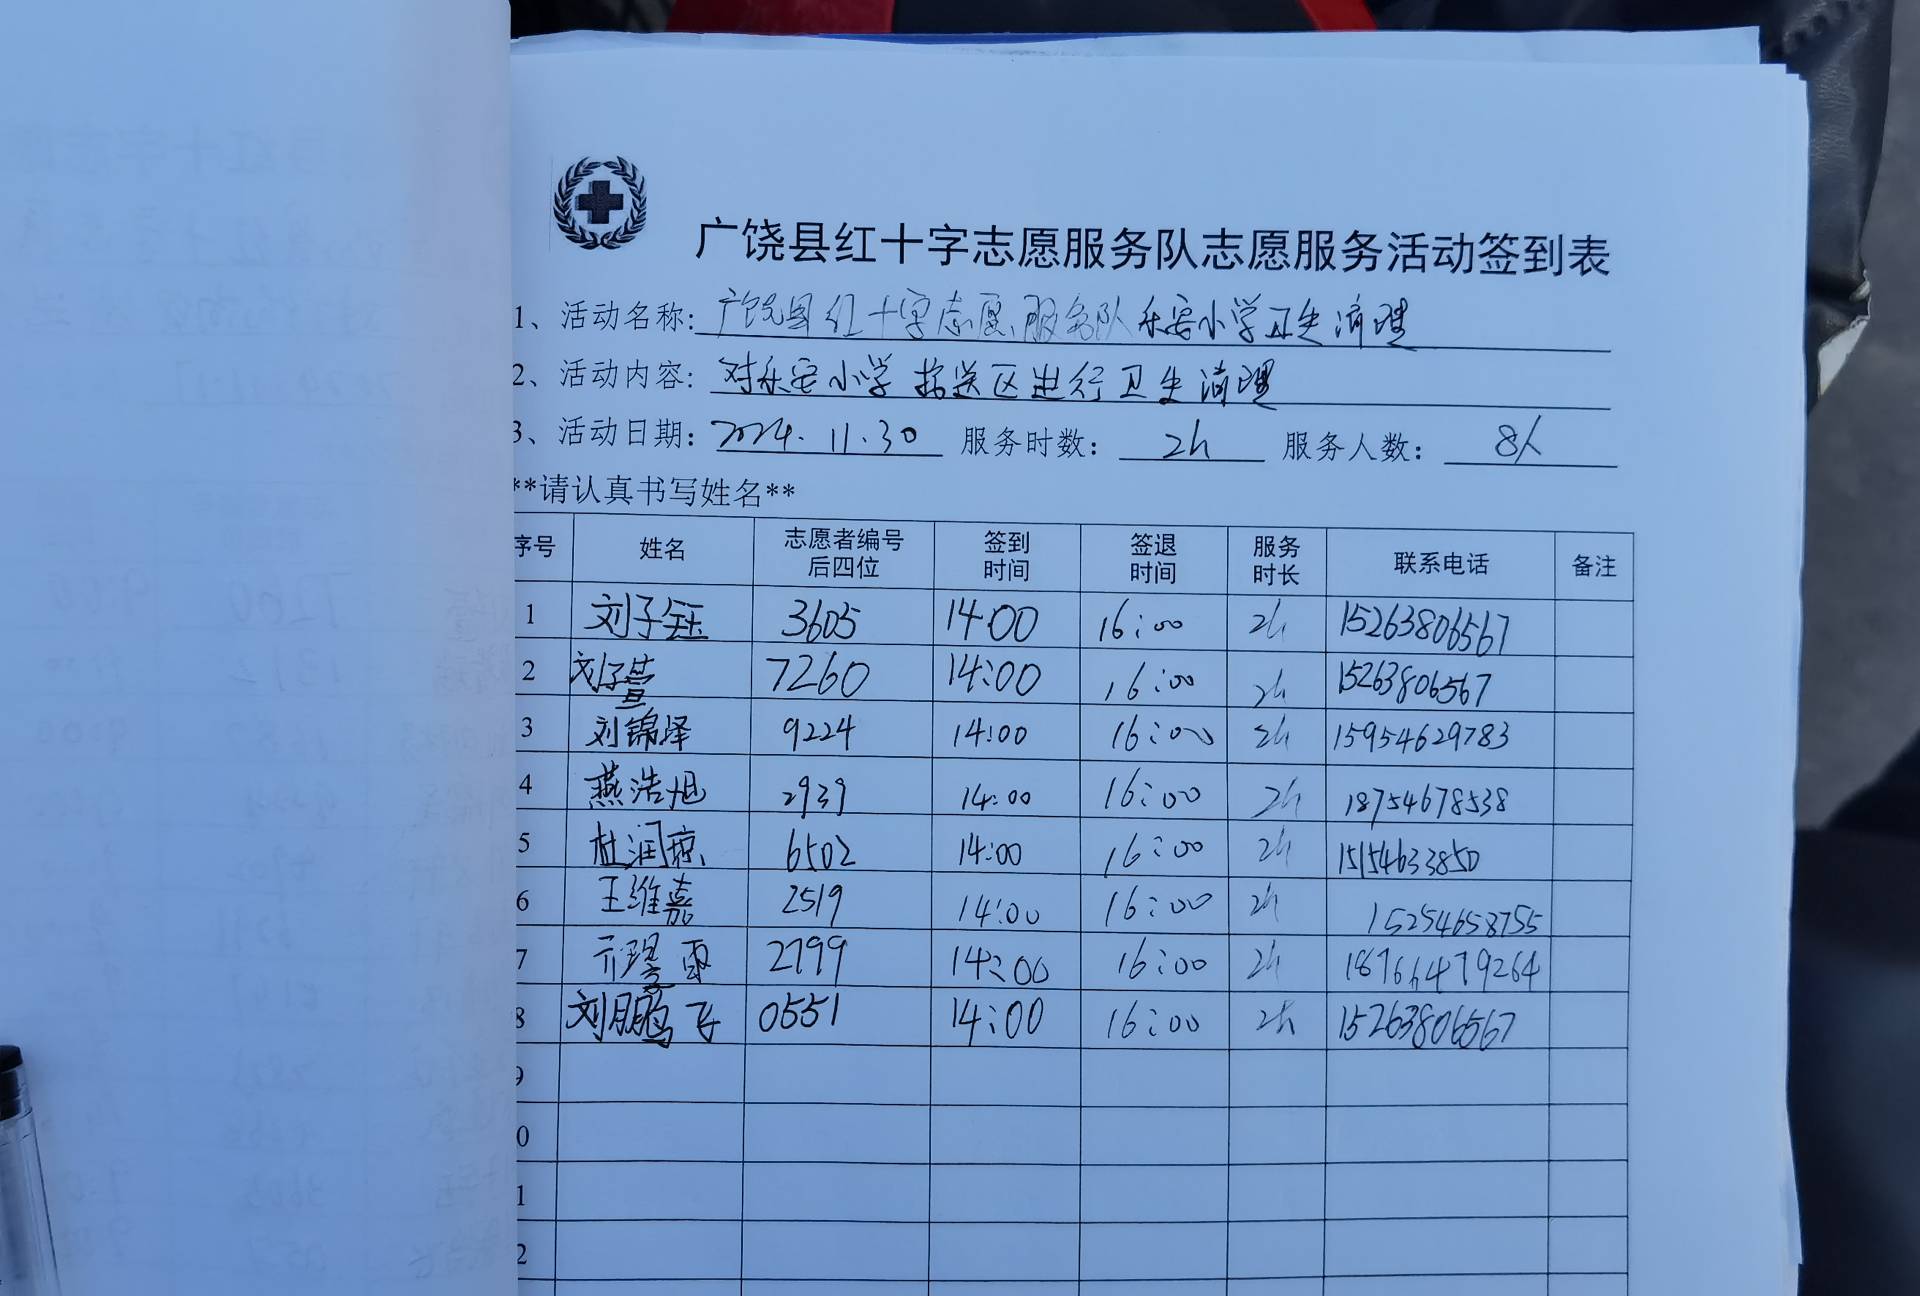 广饶县红十字志愿服务队志愿服务活动签到表
1、活动名称: 广饶县红十字志愿服务队乐安小学卫生清理
2、活动内容: 对乐安小学接送区进行卫生清理
3、活动日期: 2024.11.30 服务时数: 2h 服务人数: 8人
**请认真书写姓名**
序号 姓名 志愿者编号后四位 签到时间 签退时间 服务时长 联系电话 备注
1 刘子钰 3605 14:00 16:00 2h 15263806567
2 刘子萱 7260 14:00 16:00 2h 15263806567
3 刘锦泽 9224 14:00 16:00 2h 15954629783
4 燕浩旭 2939 14:00 16:00 2h 18754678538
5 杜润琼 6502 14:00 16:00 2h 15154633850
6 王维嘉 2519 14:00 16:00 2h 15254658755
7 雨 2799 14:00 16:00 2h 18766479264
8 刘鹏飞 0551 14:00 16:00 2h 15263806567
9
0
1
2